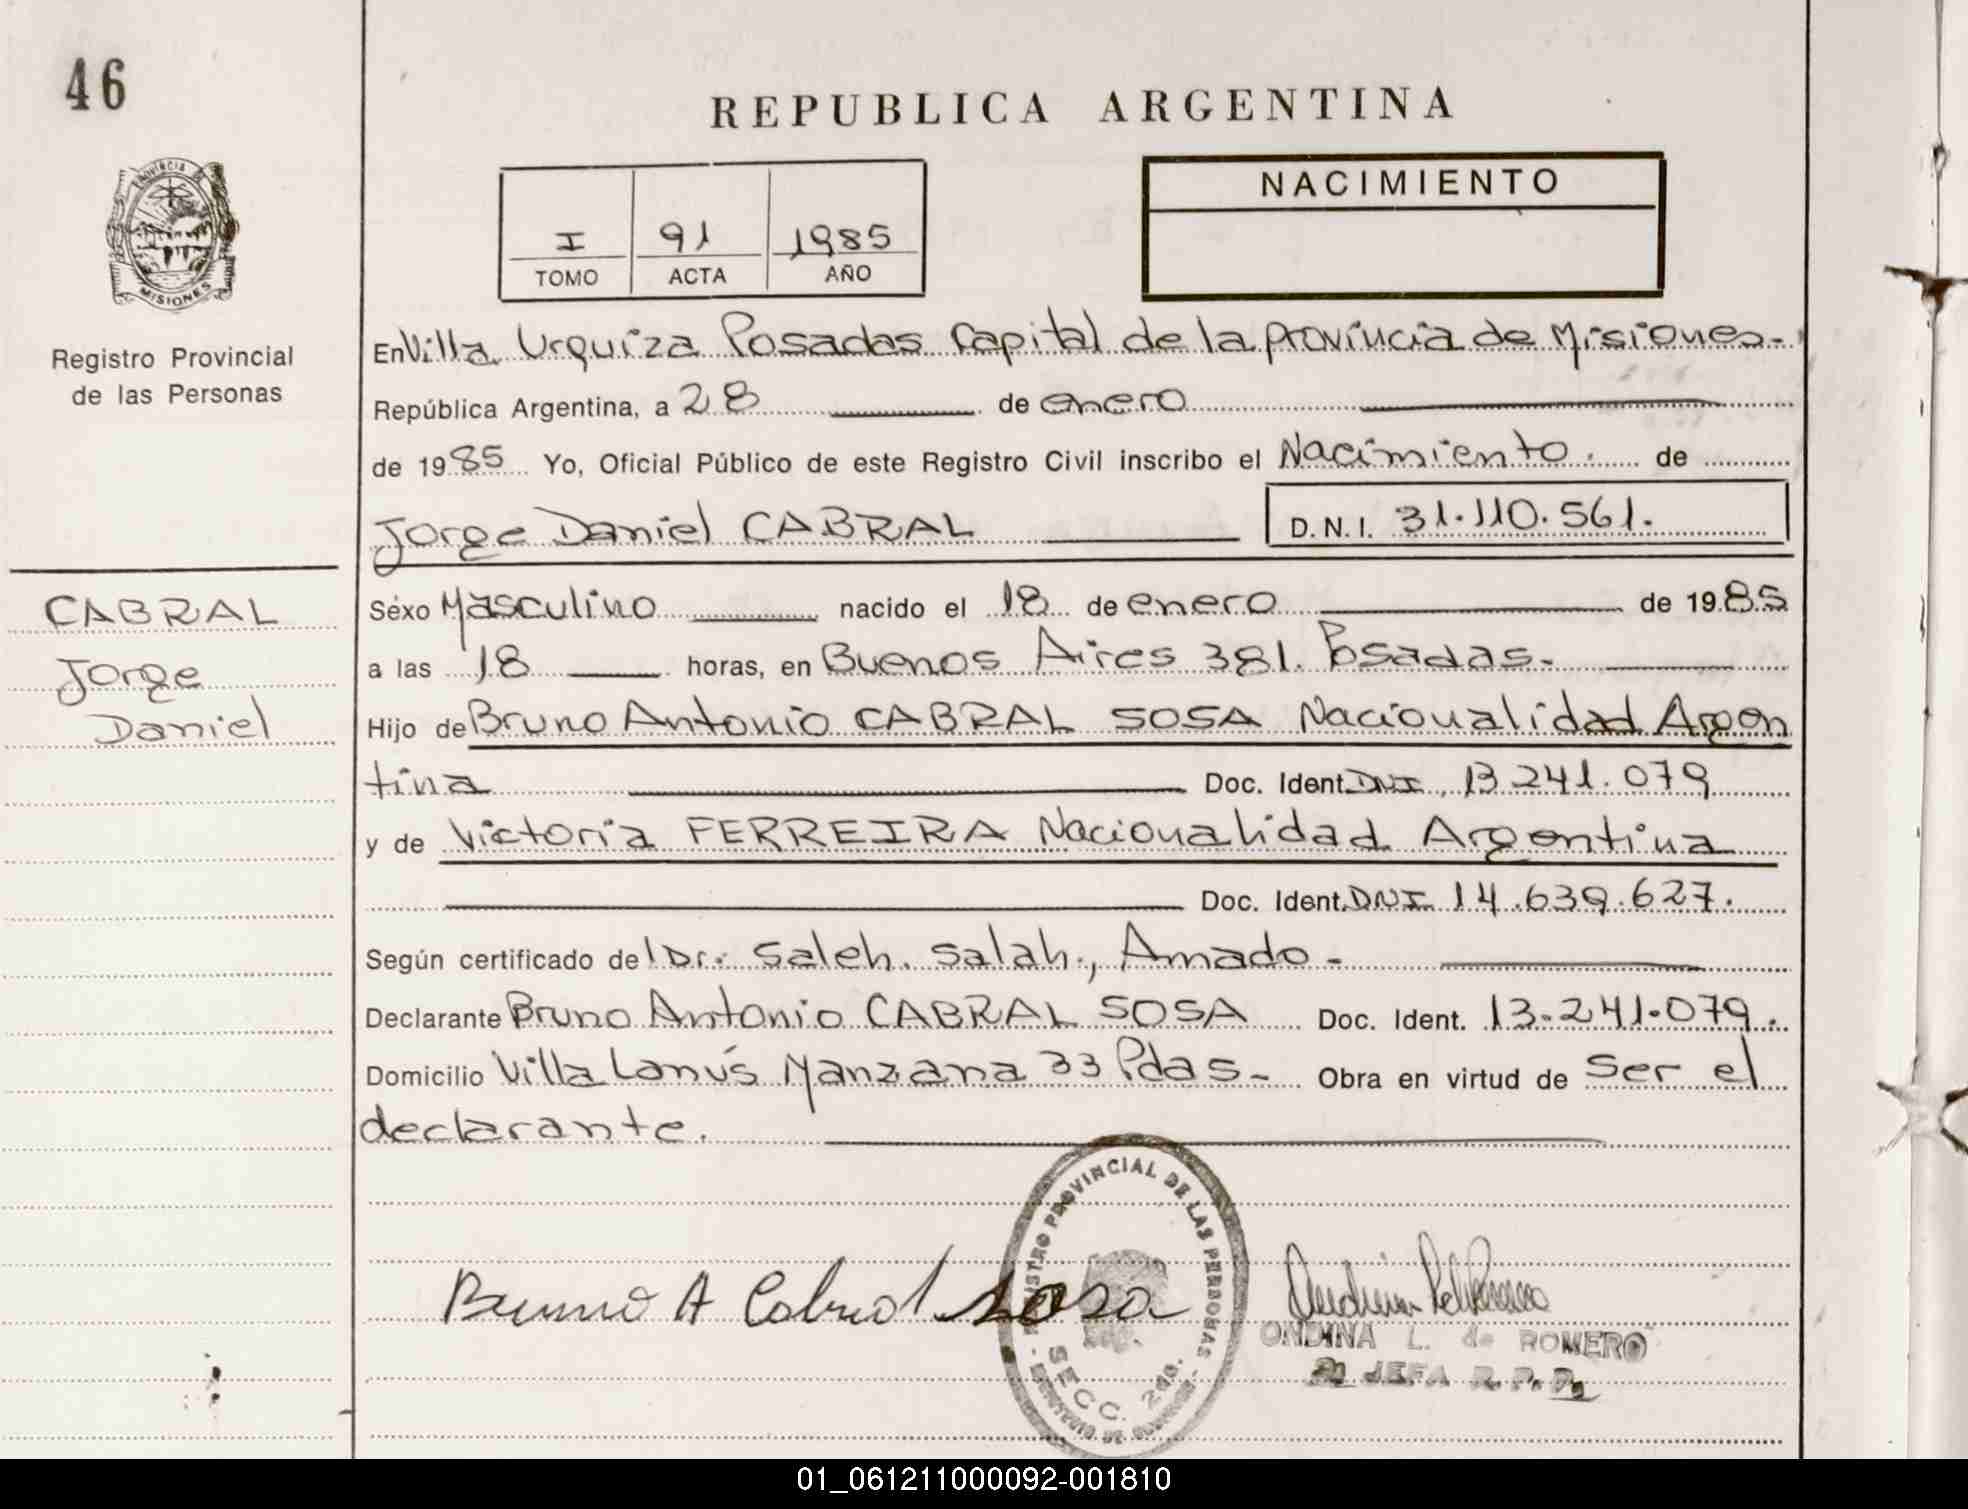 46
REPUBLICA ARGENTINA
PROVINCIA DE
MISIONES
I 91 1985
TOMO ACTA AÑO
NACIMIENTO
Registro Provincial
de las Personas
En Villa Urquiza Posadas Capital de la provincia de Misiones.
República Argentina, a 28 de enero
de 1985 Yo, Oficial Público de este Registro Civil inscribo el Nacimiento. de
Jorge Daniel CABRAL D.N.I. 31.110.561.
CABRAL
Jorge
Daniel
Sexo Masculino nacido el 18 de enero de 1985
a las 18 horas, en Buenos Aires 381. Posadas.
Hijo de Bruno Antonio CABRAL SOSA Nacionalidad Argen
tina Doc. Ident. DNI. 13.241.079
y de Victoria FERREIRA Nacionalidad Argentina
Doc. Ident. DNI 14.639.627.
Según certificado del Dr. Saleh. Salah., Amado -
Declarante Bruno Antonio CABRAL SOSA Doc. Ident. 13.241.079.
Domicilio Villa Lanús Manzana 33 Pdas - Obra en virtud de ser el
declarante.
REGISTRO PROVINCIAL DE LAS PERSONAS
SECC. 2da.
Bruno A Cabral Sosa
ONDINA L. de ROMERO
JEFA R.P.P.
01_061211000092-001810